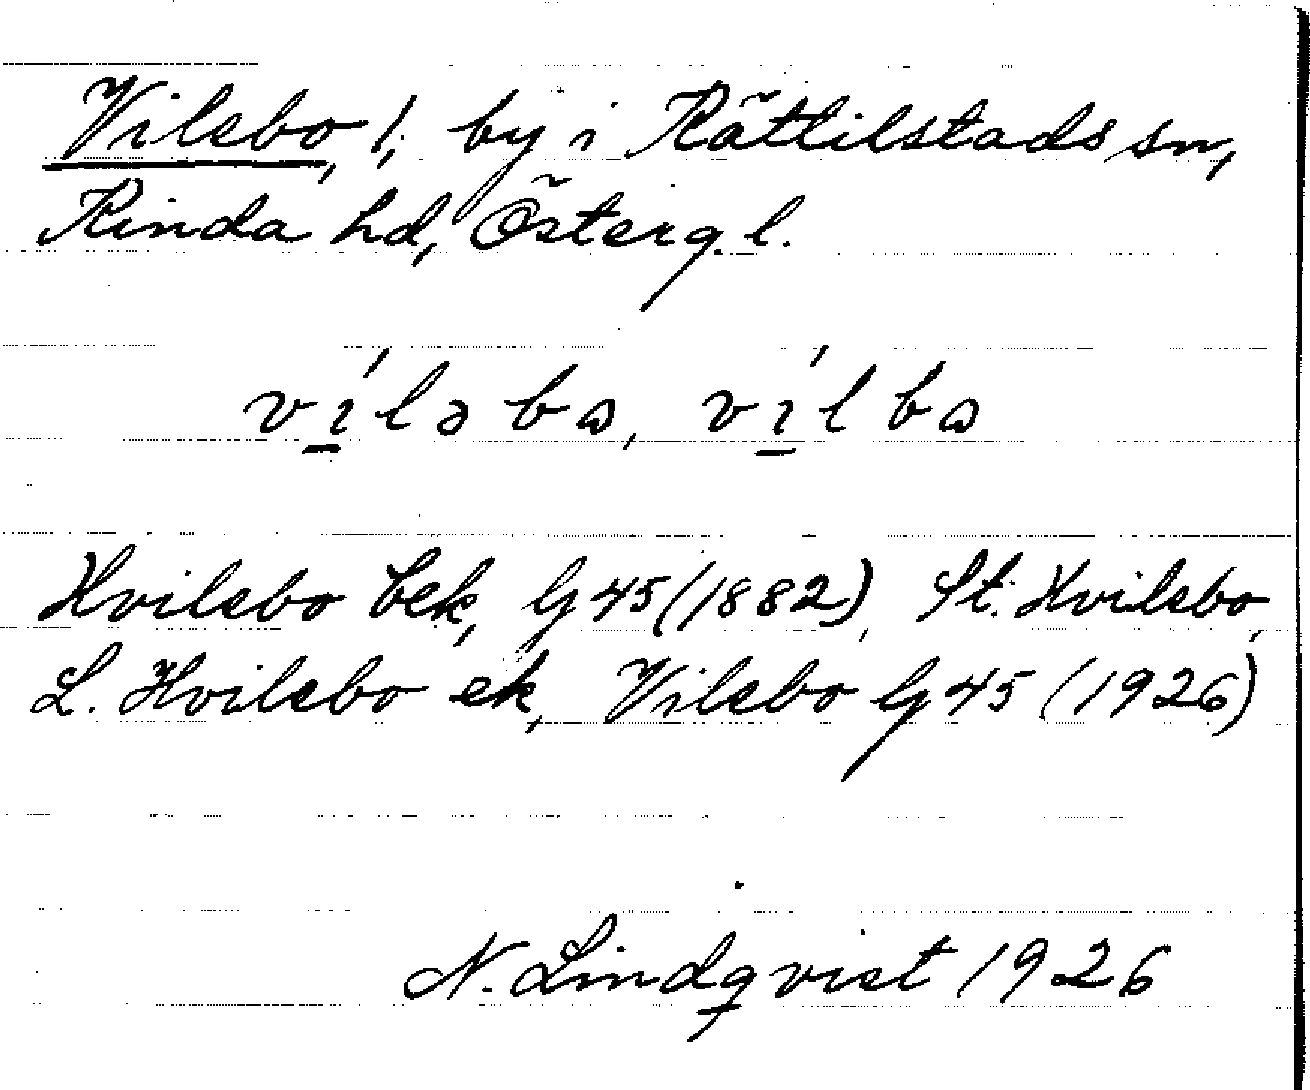 Vilsbo, !, by i Kättilstads sn,
Kinda hd, Österg. l.
vı̲́ləbɷ, vı̲́lbɷ
Hvilsbo bek, Gg 45 (1882), St. Hvilsbo,
L. Hvilsbo ek, Vilsbo Gg 45 (1926)
N. Lindqvist 1926